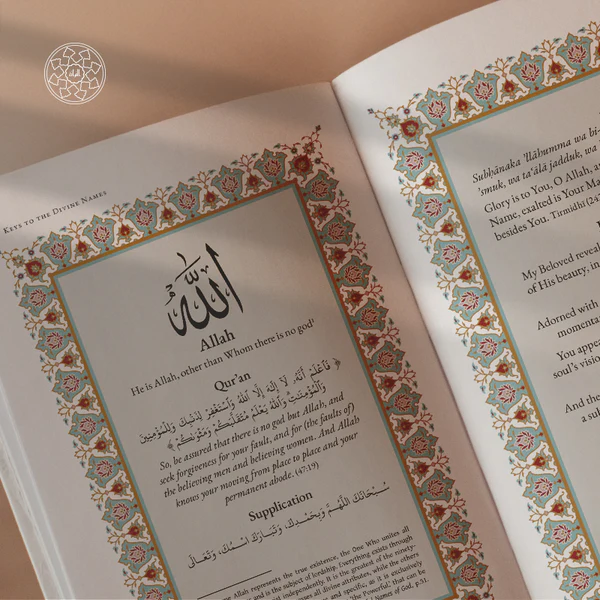 KEYS TO THE DIVINE NAMES
الله
Allah
He is Allah, other than Whom there is no god¹
Qur'an
﴿ فَاعْلَمْ أَنَّهُ لَا إِلَهَ إِلَّا اللَّهُ وَاسْتَغْفِرْ لِذَنْبِكَ وَلِلْمُؤْمِنِينَ
وَالْمُؤْمِنَاتِ وَاللَّهُ يَعْلَمُ مُتَقَلَّبَكُمْ وَمَثْوَاكُمْ ﴾
So, be assured that there is no god but Allah, and
seek forgiveness for your fault, and for (the faults of)
the believing men and believing women. And Allah
knows your moving from place to place and your
permanent abode. (47:19)
Supplication
سُبْحَانَكَ اللَّهُمَّ وَبِحَمْدِكَ، وَتَبَارَكَ اسْمُكَ، وَتَعَالَى
me Allah represents the true existence, the One Who unites all
and is the subject of lordship. Everything exists through
independently. It is the greatest of the ninety-
all divine attributes, while the others
and specific, as it is exclusively
'the Powerful,' that can be
Names of God, p.51.
Subḥānaka 'llāhumma wa bi-
'smuk, wa ta'ālā jadduk, wa
Glory is to You, O Allah, a
Name, exalted is Your Ma
besides You. Tirmidhī (24
My Beloved reveal
of His beauty, in
Adorned with
momenta
You appea
soul's vision
And the
a sub